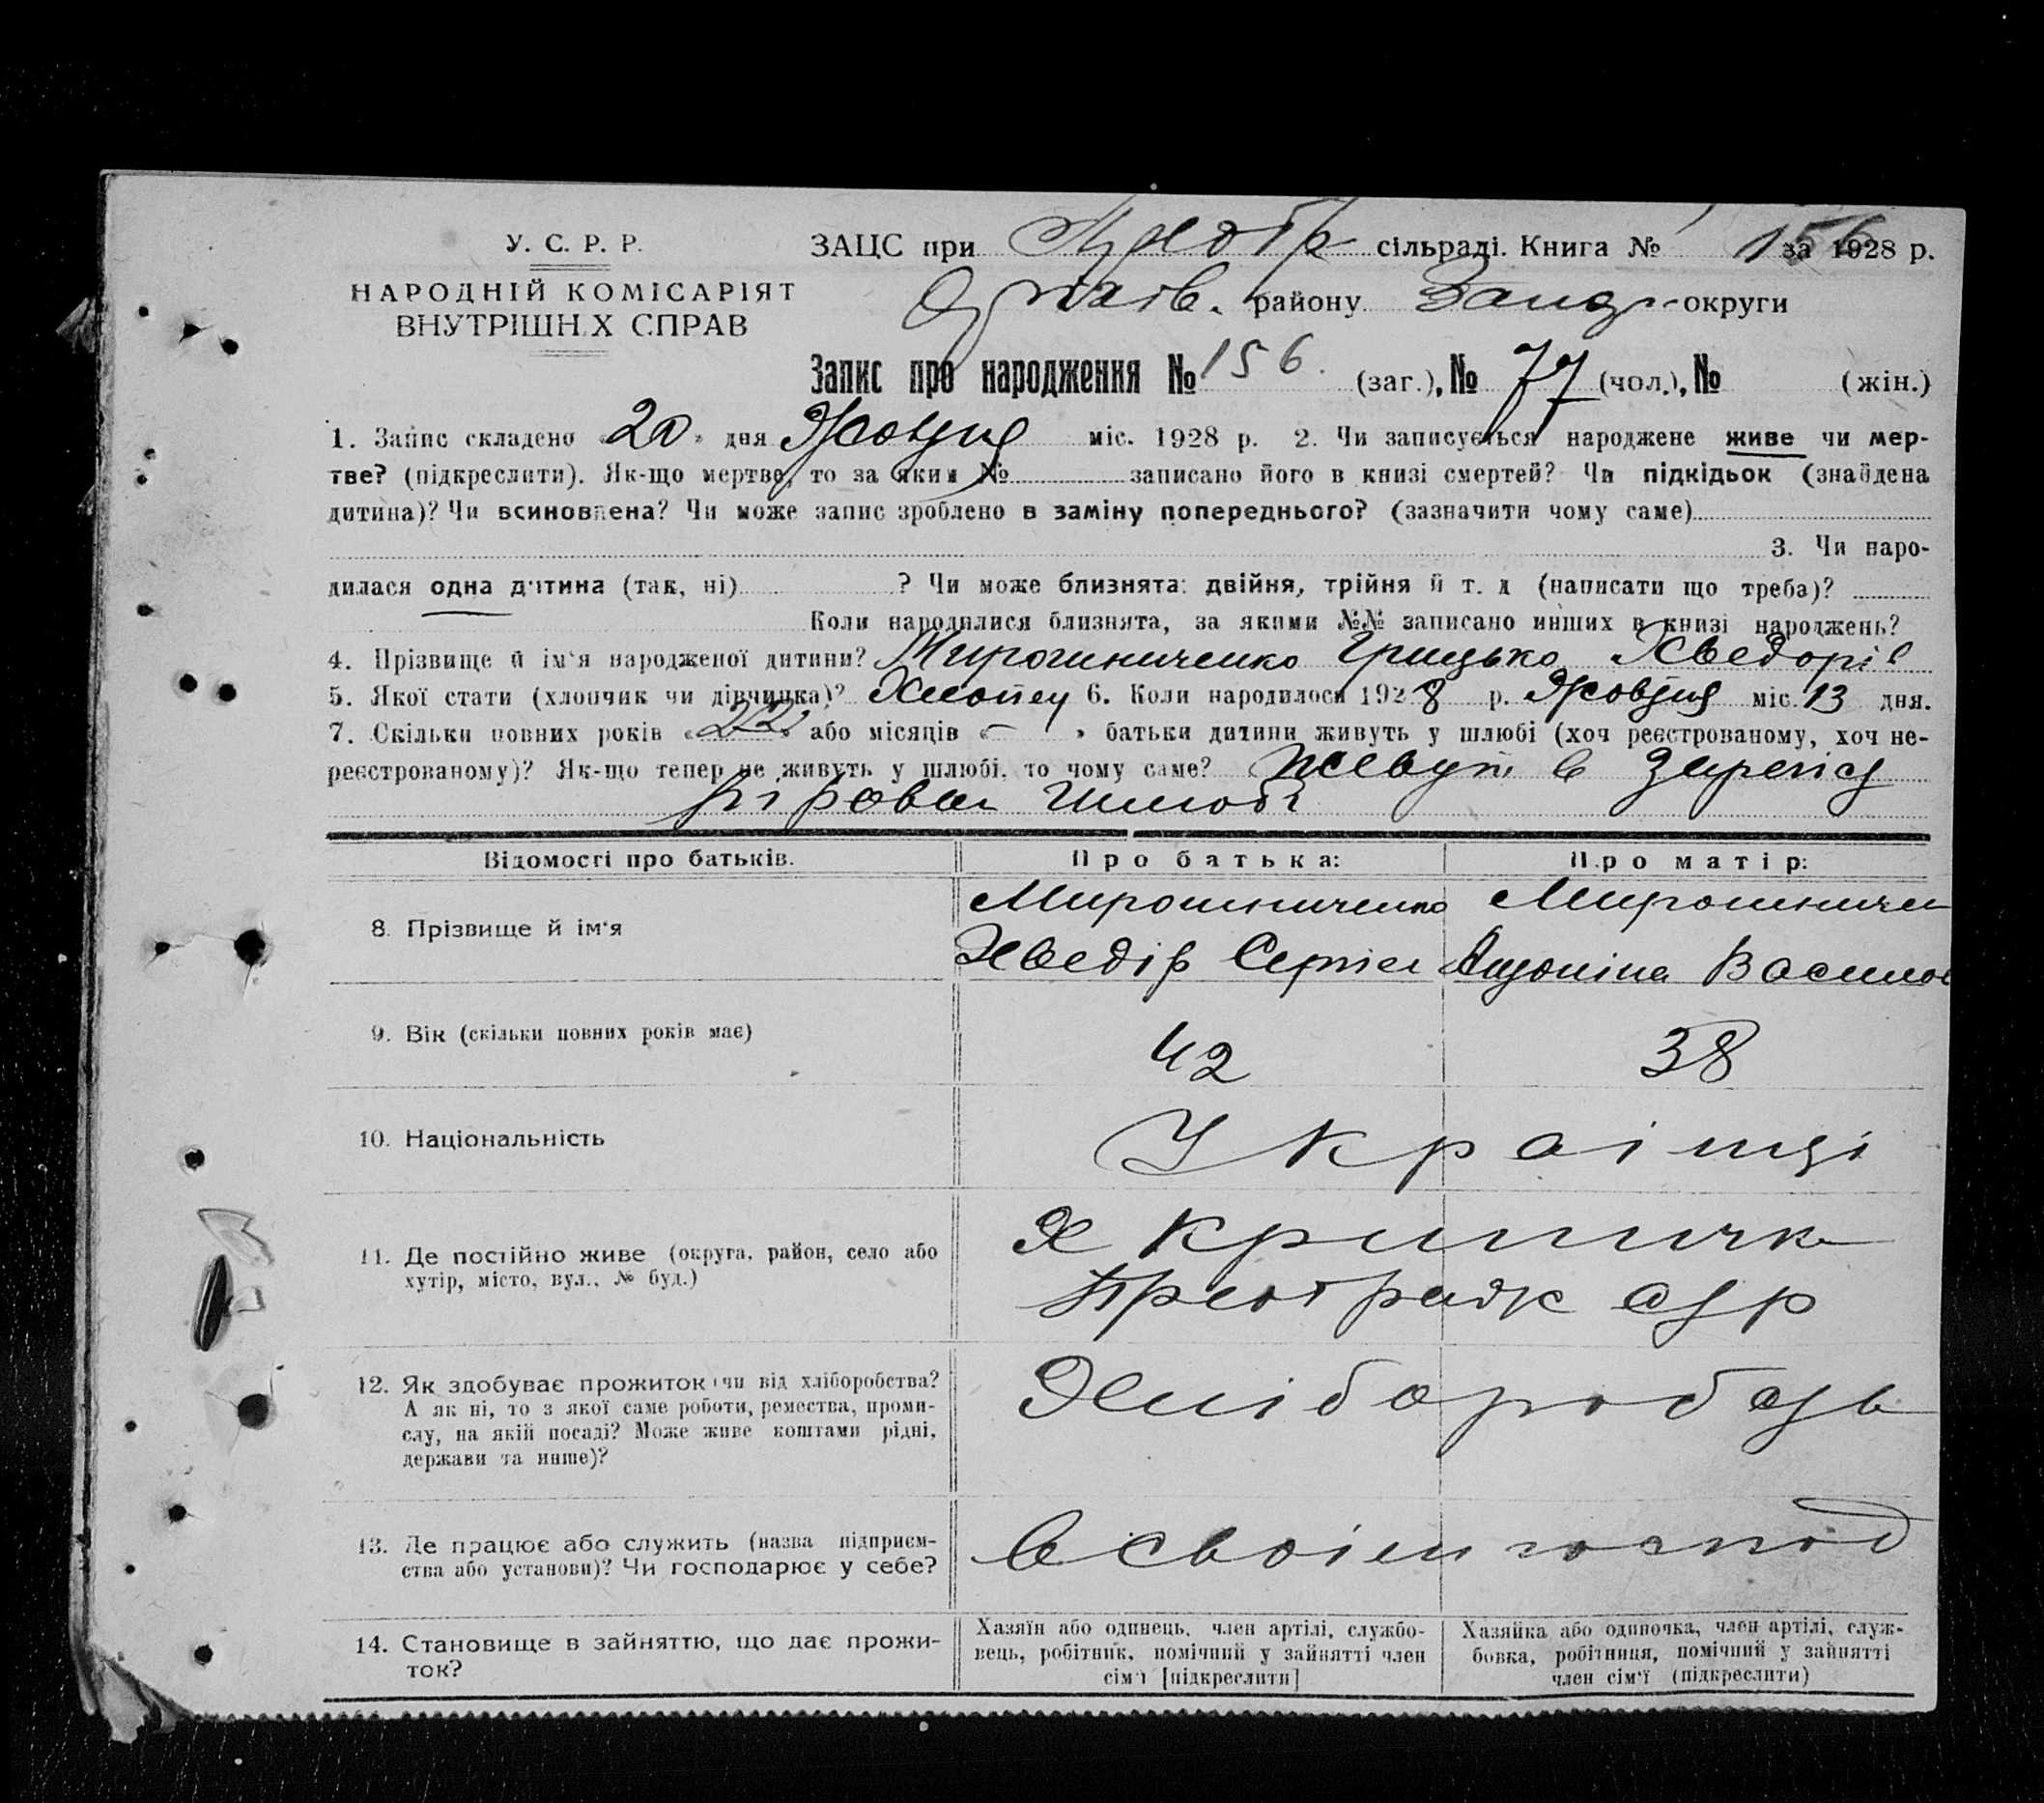 У. С. Р. Р.
НАРОДНІЙ КОМІСАРІЯТ
ВНУТРІШН.Х СПРАВ
ЗАЦС при сільраді. Книга № 156 за 1928 р.
району округи
Запис про народження № 156. (заг.), № 77 (чол.), № (жін.)
1. Запис складено «20» дня Жовтня міс. 1928 р. 2. Чи записується народжене живе чи мер-
тве? (підкреслити). Як-що мертве, то за яким № записано його в книзі смертей? Чи підкідьок (знайдена
дитина)? Чи всиновлена? Чи може запис зроблено в заміну попереднього? (зазначити чому саме)
3. Чи наро-
дилася одна дитина (так, ні) ? Чи може близнята: двійня, трійня й т. д (написати що треба)?
Коли народилися близнята, за якими №№ записано инших в книзі народжень?
4. Прізвище й ім'я народженої дитини? Мирошниченко Грицько Хведорів
5. Якої стати (хлопчик чи дівчинка)? Хлопец 6. Коли народилося 1928 р. Жовтня міс. 13 дня.
7. Скільки повних років «22» або місяців «–» батьки дитини живуть у шлюбі (хоч реєстрованому, хоч не-
реєстрованому)? Як-що тепер не живуть у шлюбі, то чому саме? Живут в
шлюбі
Відомості про батьків. Про батька: Про матір:
8. Прізвище й ім'я Мирошниченко Мирошничен
Хведір Сергіев Василов
9. Вік (скільки повних років має) 42 38
10. Національність Украінці
11. Де постійно живе (округа, район, село або
хутір, місто, вул., № буд.)
12. Як здобуває прожиток чи від хліборобства? Хлібороб
А як ні, то з якої саме роботи, ремества, проми-
слу, на якій посаді? Може живе коштами рідні,
держави та инше)?
13. Де працює або служить (назва підприєм- В своім господ
ства або установи)? Чи господарює у себе?
14. Становище в зайняттю, що дає прожи-
ток?
Хазяїн або одинець, член артілі, службо-
вець, робітник, помічний у зайнятті член
сім'ї [підкреслити]
Хазяйка або одиночка, член артілі, служ-
бовка, робітниця, помічний у зайнятті
член сім'ї (підкреслити)